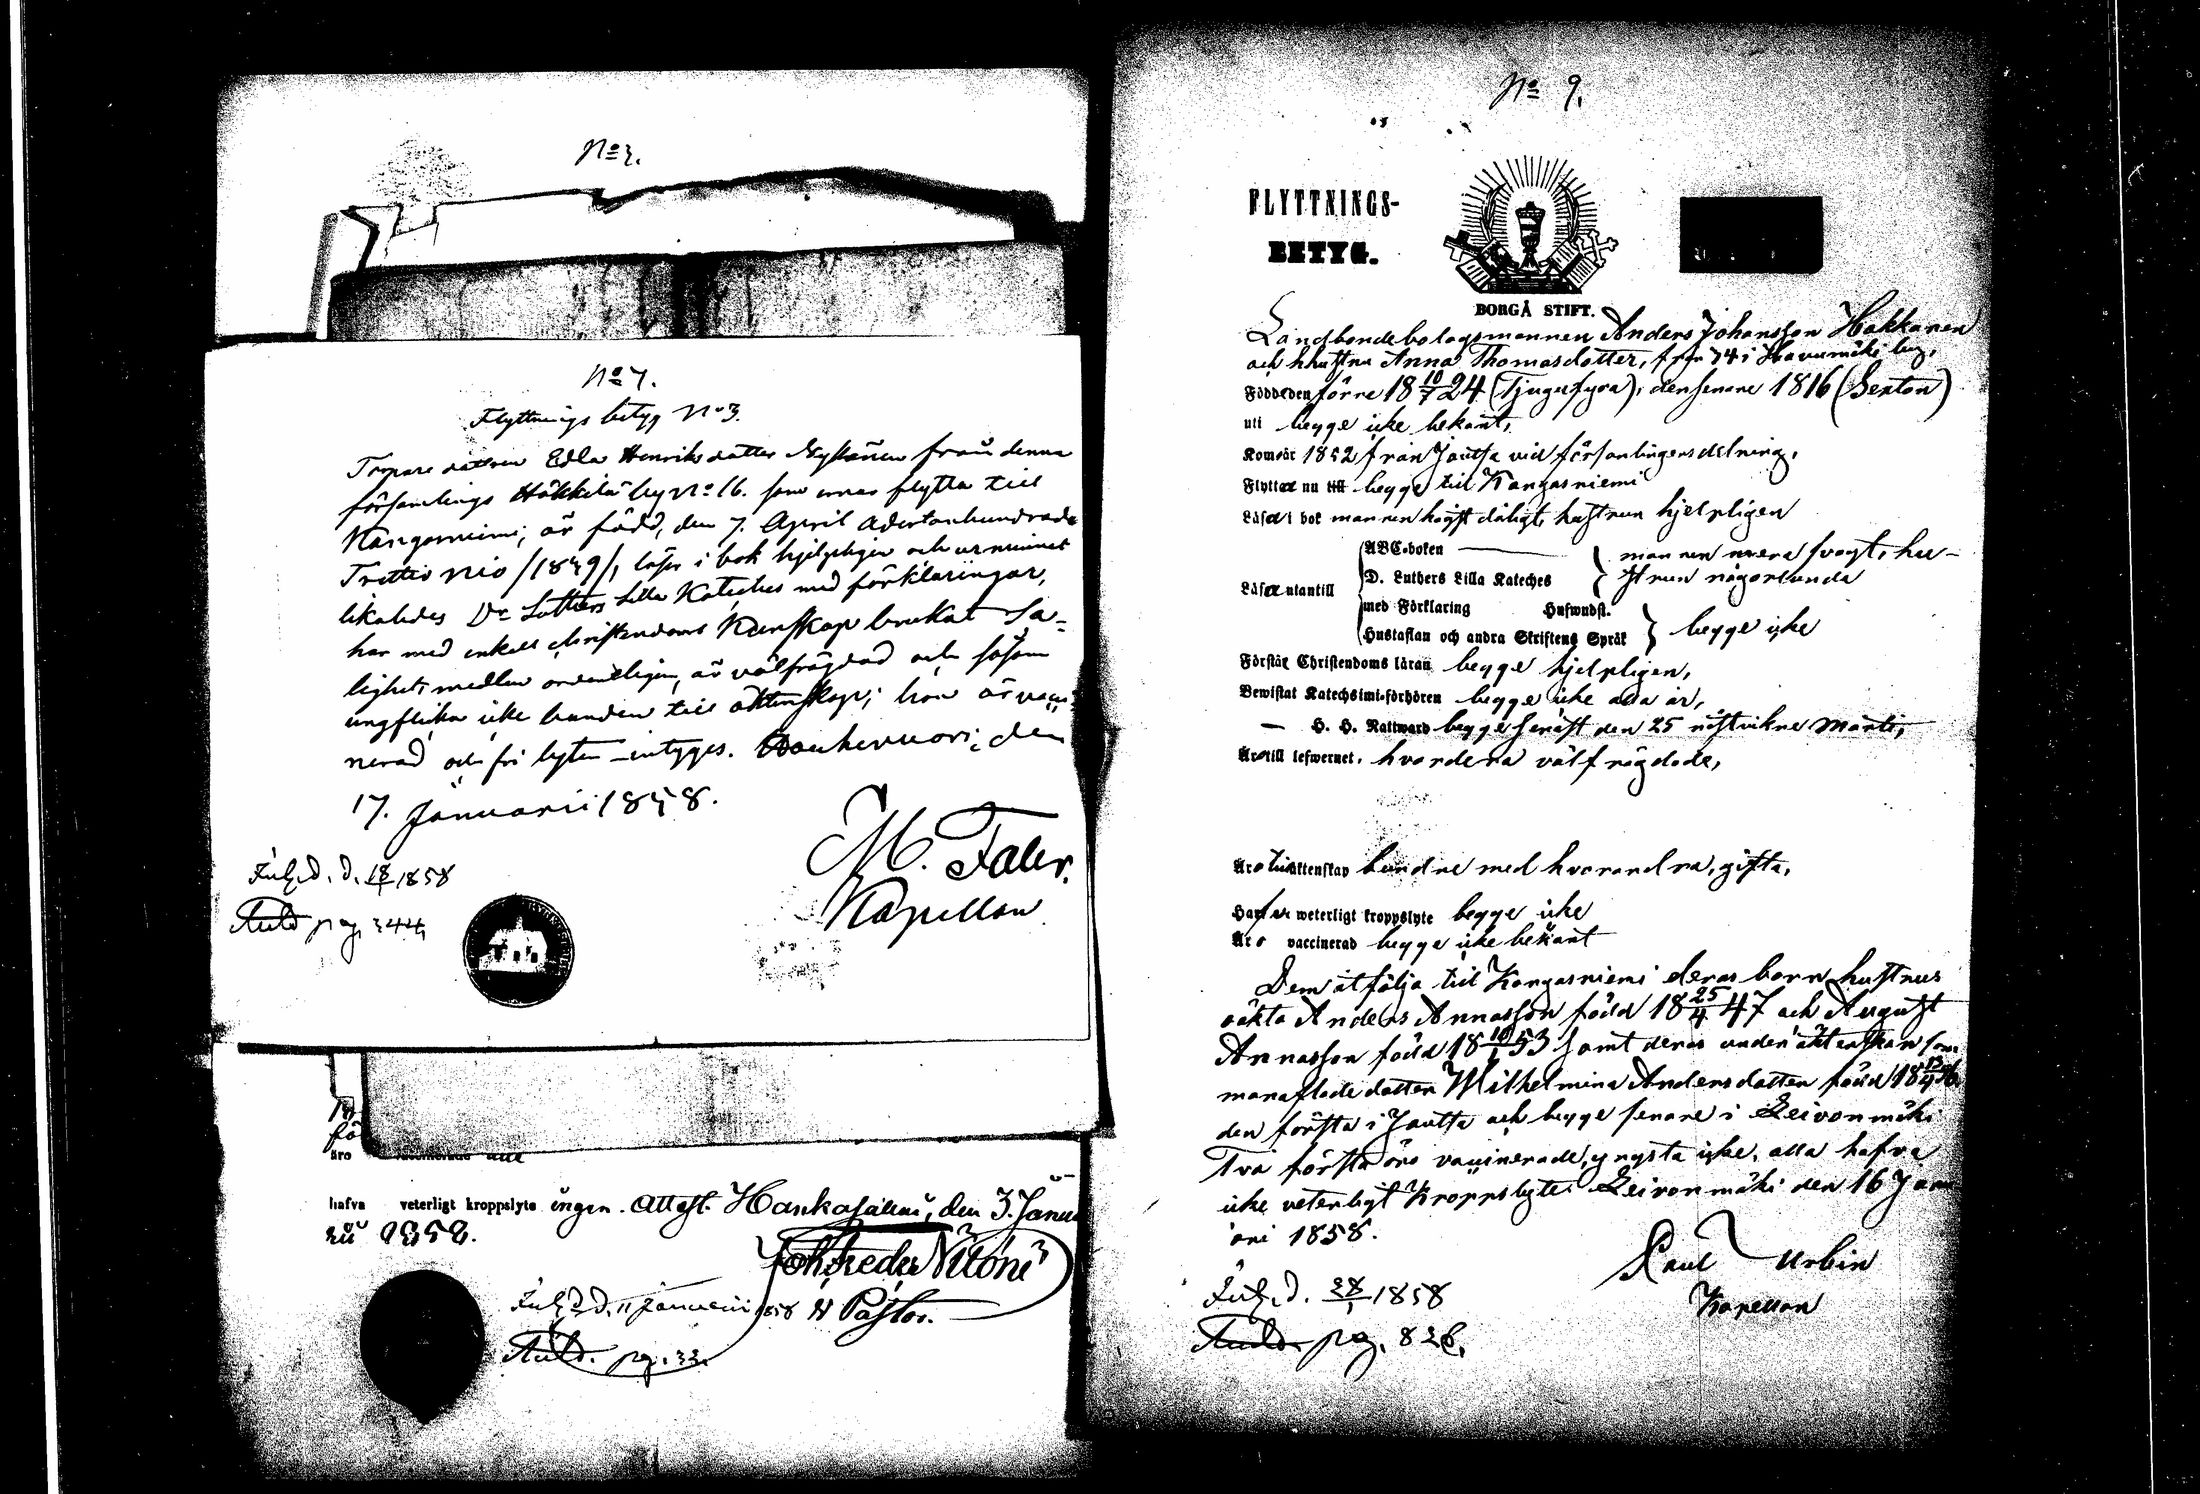 No 7.
Flyttnings betyg No 3.
Torpare dottren Edla Henriks dotter Nykänen från denna
församlings Häkkilä by No 16. som ernar flytta till
Kangasniemi, är född, den 7. April Adertonhundrade
Trettio nio /1839/, läser i bok hjelpligen och ur minnet
likaledes Dr Luthers Lilla Kateches med förklaringar,
har med enkel christendoms Kunskap brukat Sa-
lighets medlen ordentligen, är välfrägdad och såsom
ungflicka icke bunden till äktenskap; hon är vacci-
nerad och fri lyten intygas. Rauhavuori, den
17. Januarii 1858.
M. Faler.
Kapellan
Inl. d. d. 18/1 1858
pag. 344
äro
hafva veterligt kroppslyte ingen. Attest. Hankasalmi, den 3. Janua
rii 1858.
Joh. Fredr
Pastor.
Inl. d. d. 11 Januarii 1858
pg. 33.
No 9.
FLYTTNINGS-
BETYG.
BORGÅ STIFT.
Landbondebolagsmannen Anders Johansson Hokkanen
och hustru Anna Thomasdotter, från No 4 i Havumäki by,
Födde den förre 18 10/7 24 (Tjugufyra), den senare 1816 (Sexton)
uti begge icke bekant,
Kom år 1852 från Joutsa vid församlingens delning,
Flytta nu till begge till Kangasniemi
Läsa i bok mannen högst dåligt, hustrun hjelpligen
Läsa utantill
ABC-boken
D. Luthers Lilla Kateches
mannen svagt, hu-
strun någorlunda
med Förklaring Hufwudst.
Hustaflan och andra Skriftens Språk
begge icke
Förstår Christendoms läran begge hjelpligen,
Bewistat Katechismi-förhören begge icke alla år,
— H. H. Nattward begge senast den 25 nästvikne Martii,
Äro till lefwernet, hvardera välfrägdade,
Äro till äktenskap bundne med hvarandra, gifta,
Hafva weterligt kroppslyte begge icke
Äro vaccinerad begge icke bekant
Dem åtfölja till Kangasniemi deras barn hustrus
oäkta Anders Annasson född 18 25/4 47 och August
Annasson född 18 10/1 53 samt deras under äktenskap
dotter Wilhelmina Andersdotter född
den första i Joutsa och begge senare i Leivonmäki
Två första äro vaccinerade, yngsta icke, alla hafva
icke veterligt kroppslyte. Leivonmäki den 16 Janu
ari 1858.
Paul Urbin
Kapellan
Inl. d. 28/1 1858
pag. 826.